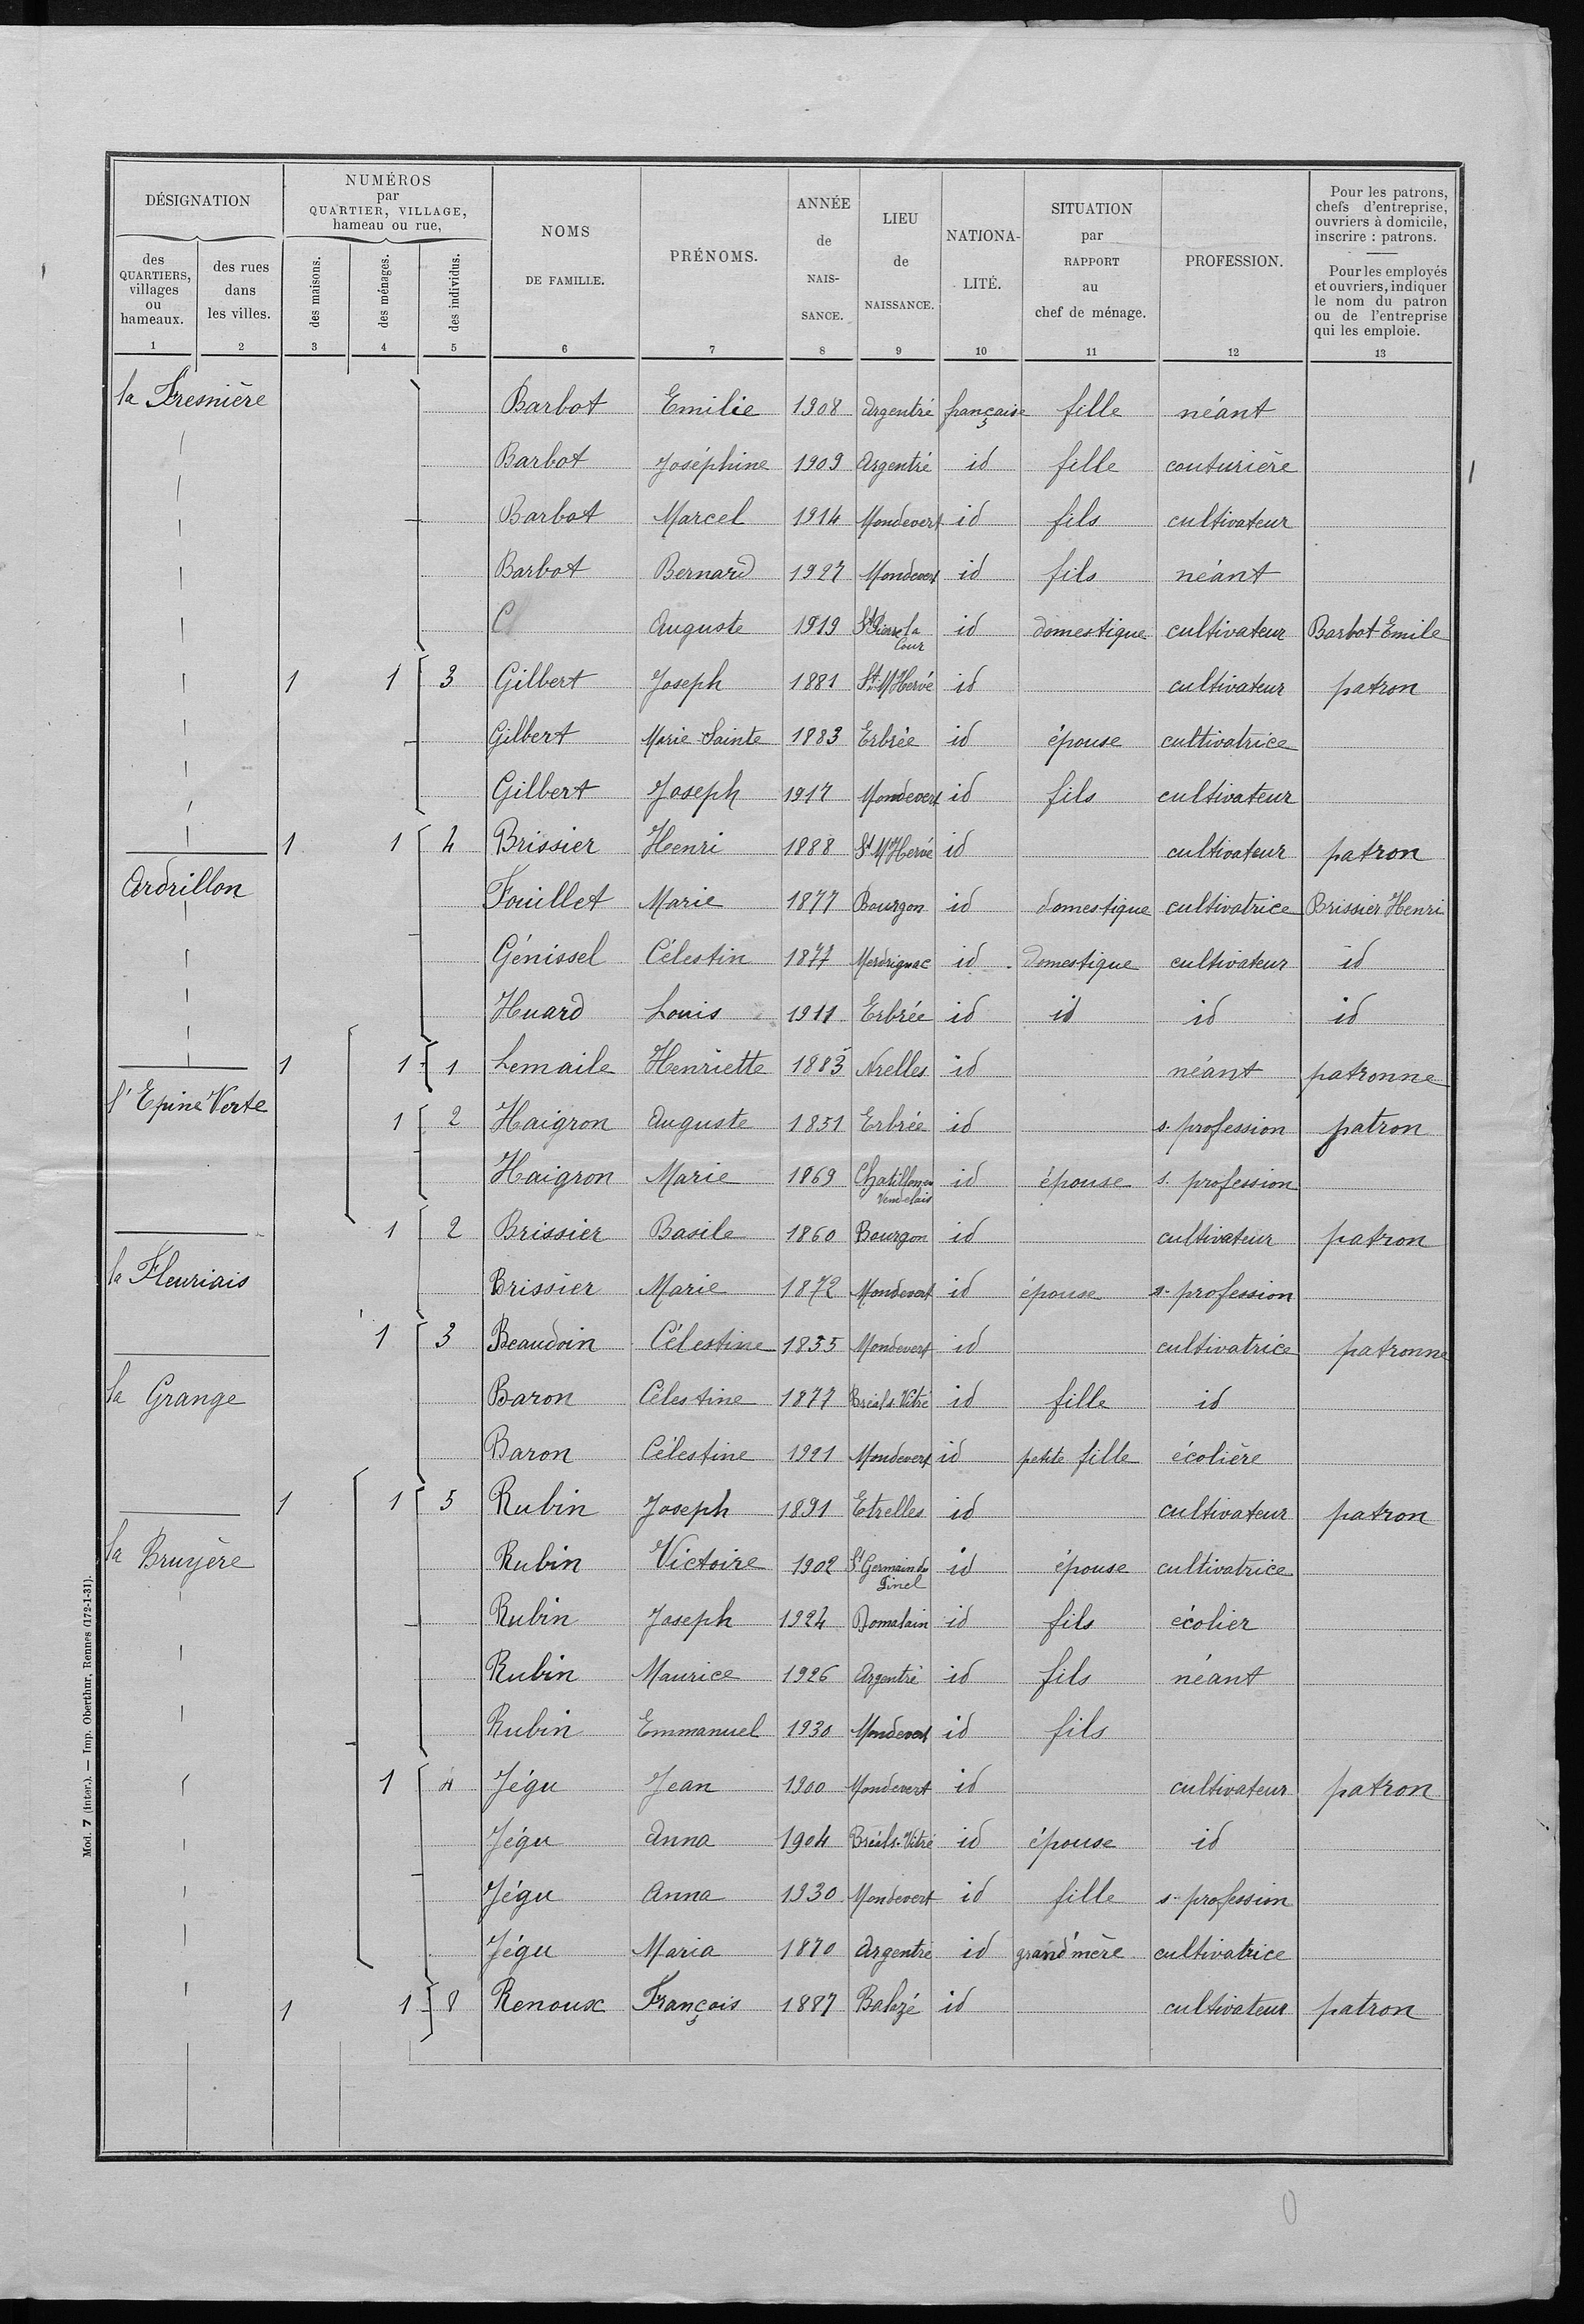 DÉSIGNATION
NUMÉROS
par
QUARTIER, VILLAGE,
hameau ou rue,
des
QUARTIERS,
villages
ou
hameaux.
des rues
dans
les villes.
des maisons.
des ménages.
des individus.
NOMS
DE FAMILLE.
PRÉNOMS.
ANNÉE
de
NAIS-
SANCE.
LIEU
de
NAISSANCE.
NATIONA-
LITÉ.
SITUATION
par
RAPPORT
au
chef de ménage.
PROFESSION.
Pour les patrons,
chefs d'entreprise,
ouvriers à domicile,
inscrire : patrons.
Pour les employés
et ouvriers, indiquer
le nom du patron
ou de l'entreprise
qui les emploie.
1 2 3 4 5 6 7 8 9 10 11 12 13
la Fresnière Barbot Emilie 1908 Argentré française fille néant
Barbot Joséphine 1909 Argentré id fille couturière
Barbot Marcel 1914 Mondevert id fils cultivateur
Barbot Bernard 1927 Mondevert id fils néant
C Auguste 1919 St Pierre la Cour id domestique cultivateur Barbot Emile
1 1 3 Gilbert Joseph 1881 St M Hervé id cultivateur patron
Gilbert Marie Sainte 1883 Erbrée id épouse cultivatrice
Gilbert Joseph 1917 Mondevert id fils cultivateur
1 1 4 Brissier Henri 1888 St M Hervé id cultivateur patron
Ardrillon Fouillet Marie 1877 Bourgon id domestique cultivatrice Brissier Henri
Génissel Célestin 1877 Merdrignac id domestique cultivateur id
Huard Louis 1911 Erbrée id id id id
1 1 1 Lemaile Henriette 1883 id néant patronne
l'Epine Verte 1 2 Haigron Auguste 1851 Erbrée id s. profession patron
Haigron Marie 1869 Chatillon en Vendelais id épouse s. profession
1 2 Brissier Basile 1860 Bourgon id cultivateur patron
la Fleuriais Brissier Marie 1872 Mondevert id épouse s. profession
1 3 Beaudoin Célestine 1855 Mondevert id cultivatrice patronne
la Grange Baron Célestine 1877 Bréal s. Vitré id fille id
Baron Célestine 1921 Mondevert id petite fille écolière
1 1 5 Rubin Joseph 1891 Etrelles id cultivateur patron
la Bruyère Rubin Victoire 1902 St Germain du Pinel id épouse cultivatrice
Rubin Joseph 1924 Domalain id fils écolier
Rubin Maurice 1926 Argentré id fils néant
Rubin Emmanuel 1930 Mondevert id fils
1 4 Jégu Jean 1900 Mondevert id cultivateur patron
Jégu Anna 1904 Bréal s. Vitré id épouse id
Jégu Anna 1930 Mondevert id fille s. profession
Jégu Maria 1870 Argentré id grand'mère cultivatrice
1 1 8 Renoux François 1887 Balazé id cultivateur patron
Mod. 7 (Inter.). — Imp. Oberthur, Rennes (172-1-31).